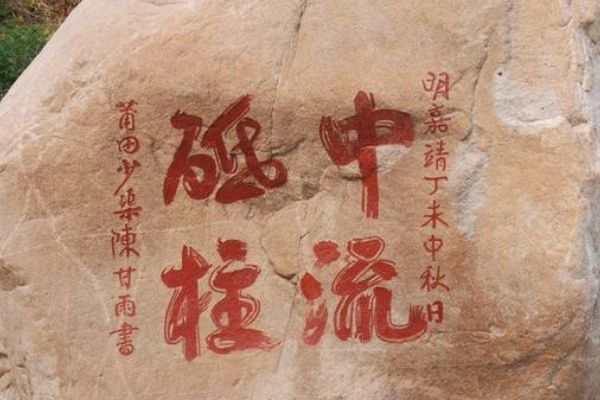 明嘉靖丁未中秋日
中流
砥柱
莆田少渠陳甘雨書